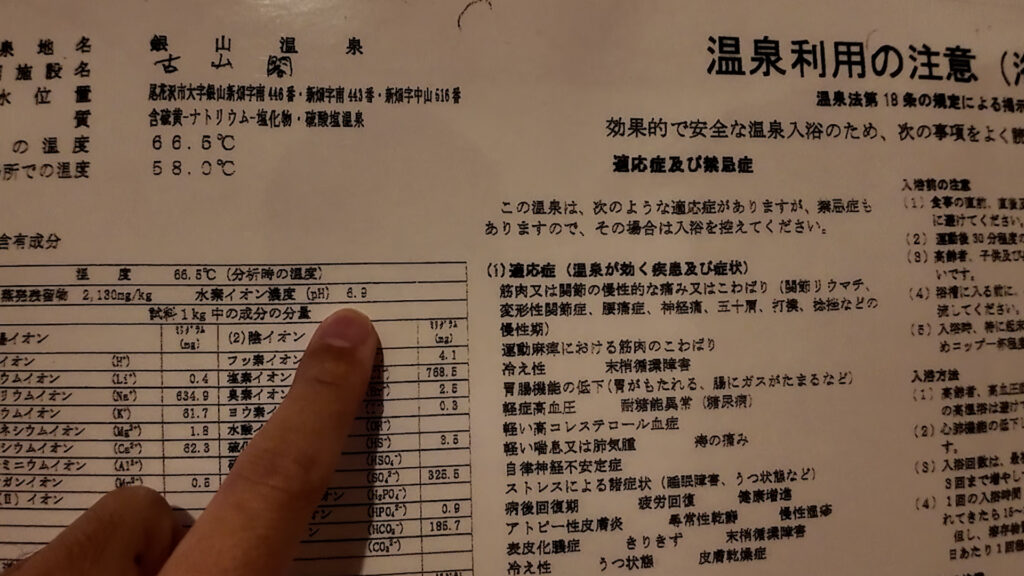 泉地名 銀山温泉
施設名 古山閣
位置 尾花沢市大字銀山新畑字南446番・新畑字南443番・新畑字中山516番
質 含硫黄-ナトリウム-塩化物・硫酸塩温泉
の温度 66.5℃
所での温度 58.0℃
含有成分
温度 66.5℃ (分析時の温度)
蒸発残留物 2,130mg/kg 水素イオン濃度 (pH) 6.9
試料1kg中の成分の分量
イオン ミリグラム (mg) (2)陰イオン ミリグラム (mg)
イオン (H⁺) フッ素イオ 4.1
ウムイオン (Li⁺) 0.4 塩素イオン 768.5
リウムイオン (Na⁺) 634.9 臭素イオ 2.5
ウムイオン (K⁺) 61.7 ヨウ素 0.3
ネシウムイオン (Mg²⁺) 1.8 水酸 (OH⁻)
シウムイオン (Ca²⁺) 82.3 硫化 (HS⁻) 3.5
ミニウムイオン (Al³⁺) (HSO₄⁻)
ガンイオン 0.5 (SO₄²⁻) 325.5
(Ⅱ)イオン オン (H₂PO₄⁻)
ン (HPO₄²⁻) 0.9
(HCO₃⁻) 185.7
(CO₃²⁻)
温泉利用の注意
温泉法第18条の規定による掲示
効果的で安全な温泉入浴のため、次の事項をよく
適応症及び禁忌症
この温泉は、次のような適応症がありますが、禁忌症も
ありますので、その場合は入浴を控えてください。
(i)適応症(温泉が効く疾患及び症状)
筋肉又は関節の慢性的な痛み又はこわばり(関節リウマチ、
変形性関節症、腰痛症、神経痛、五十肩、打撲、捻挫などの
慢性期)
運動麻痺における筋肉のこわばり
冷え性 末梢循環障害
胃腸機能の低下(胃がもたれる、腸にガスがたまるなど)
軽症高血圧 耐糖能異常(糖尿病)
軽い高コレステロール血症
軽い喘息又は肺気腫 痔の痛み
自律神経不安定症
ストレスによる諸症状(睡眠障害、うつ状態など)
病後回復期 疲労回復 健康増進
アトピー性皮膚炎 尋常性乾癬 慢性湿疹
表皮化膿症 きりきず 末梢循環障害
冷え性 うつ状態 皮膚乾燥症
入浴前の注意
(1)食事の直前、直後
に避けてください
(2)運動後30分程度の
(3)高齢者、子供及び
いです。
(4)浴槽に入る前に、
流してください。
(5)入浴時、特に起
めコップ一杯程
入浴方法
(1)高齢者、高血圧
の高温浴は避け
(2)心肺機能の低下
す。
(3)入浴回数は、最
3回まで増やし
(4)1回の入浴時間
れてきたら15~
但し、溶存
日あたり1回